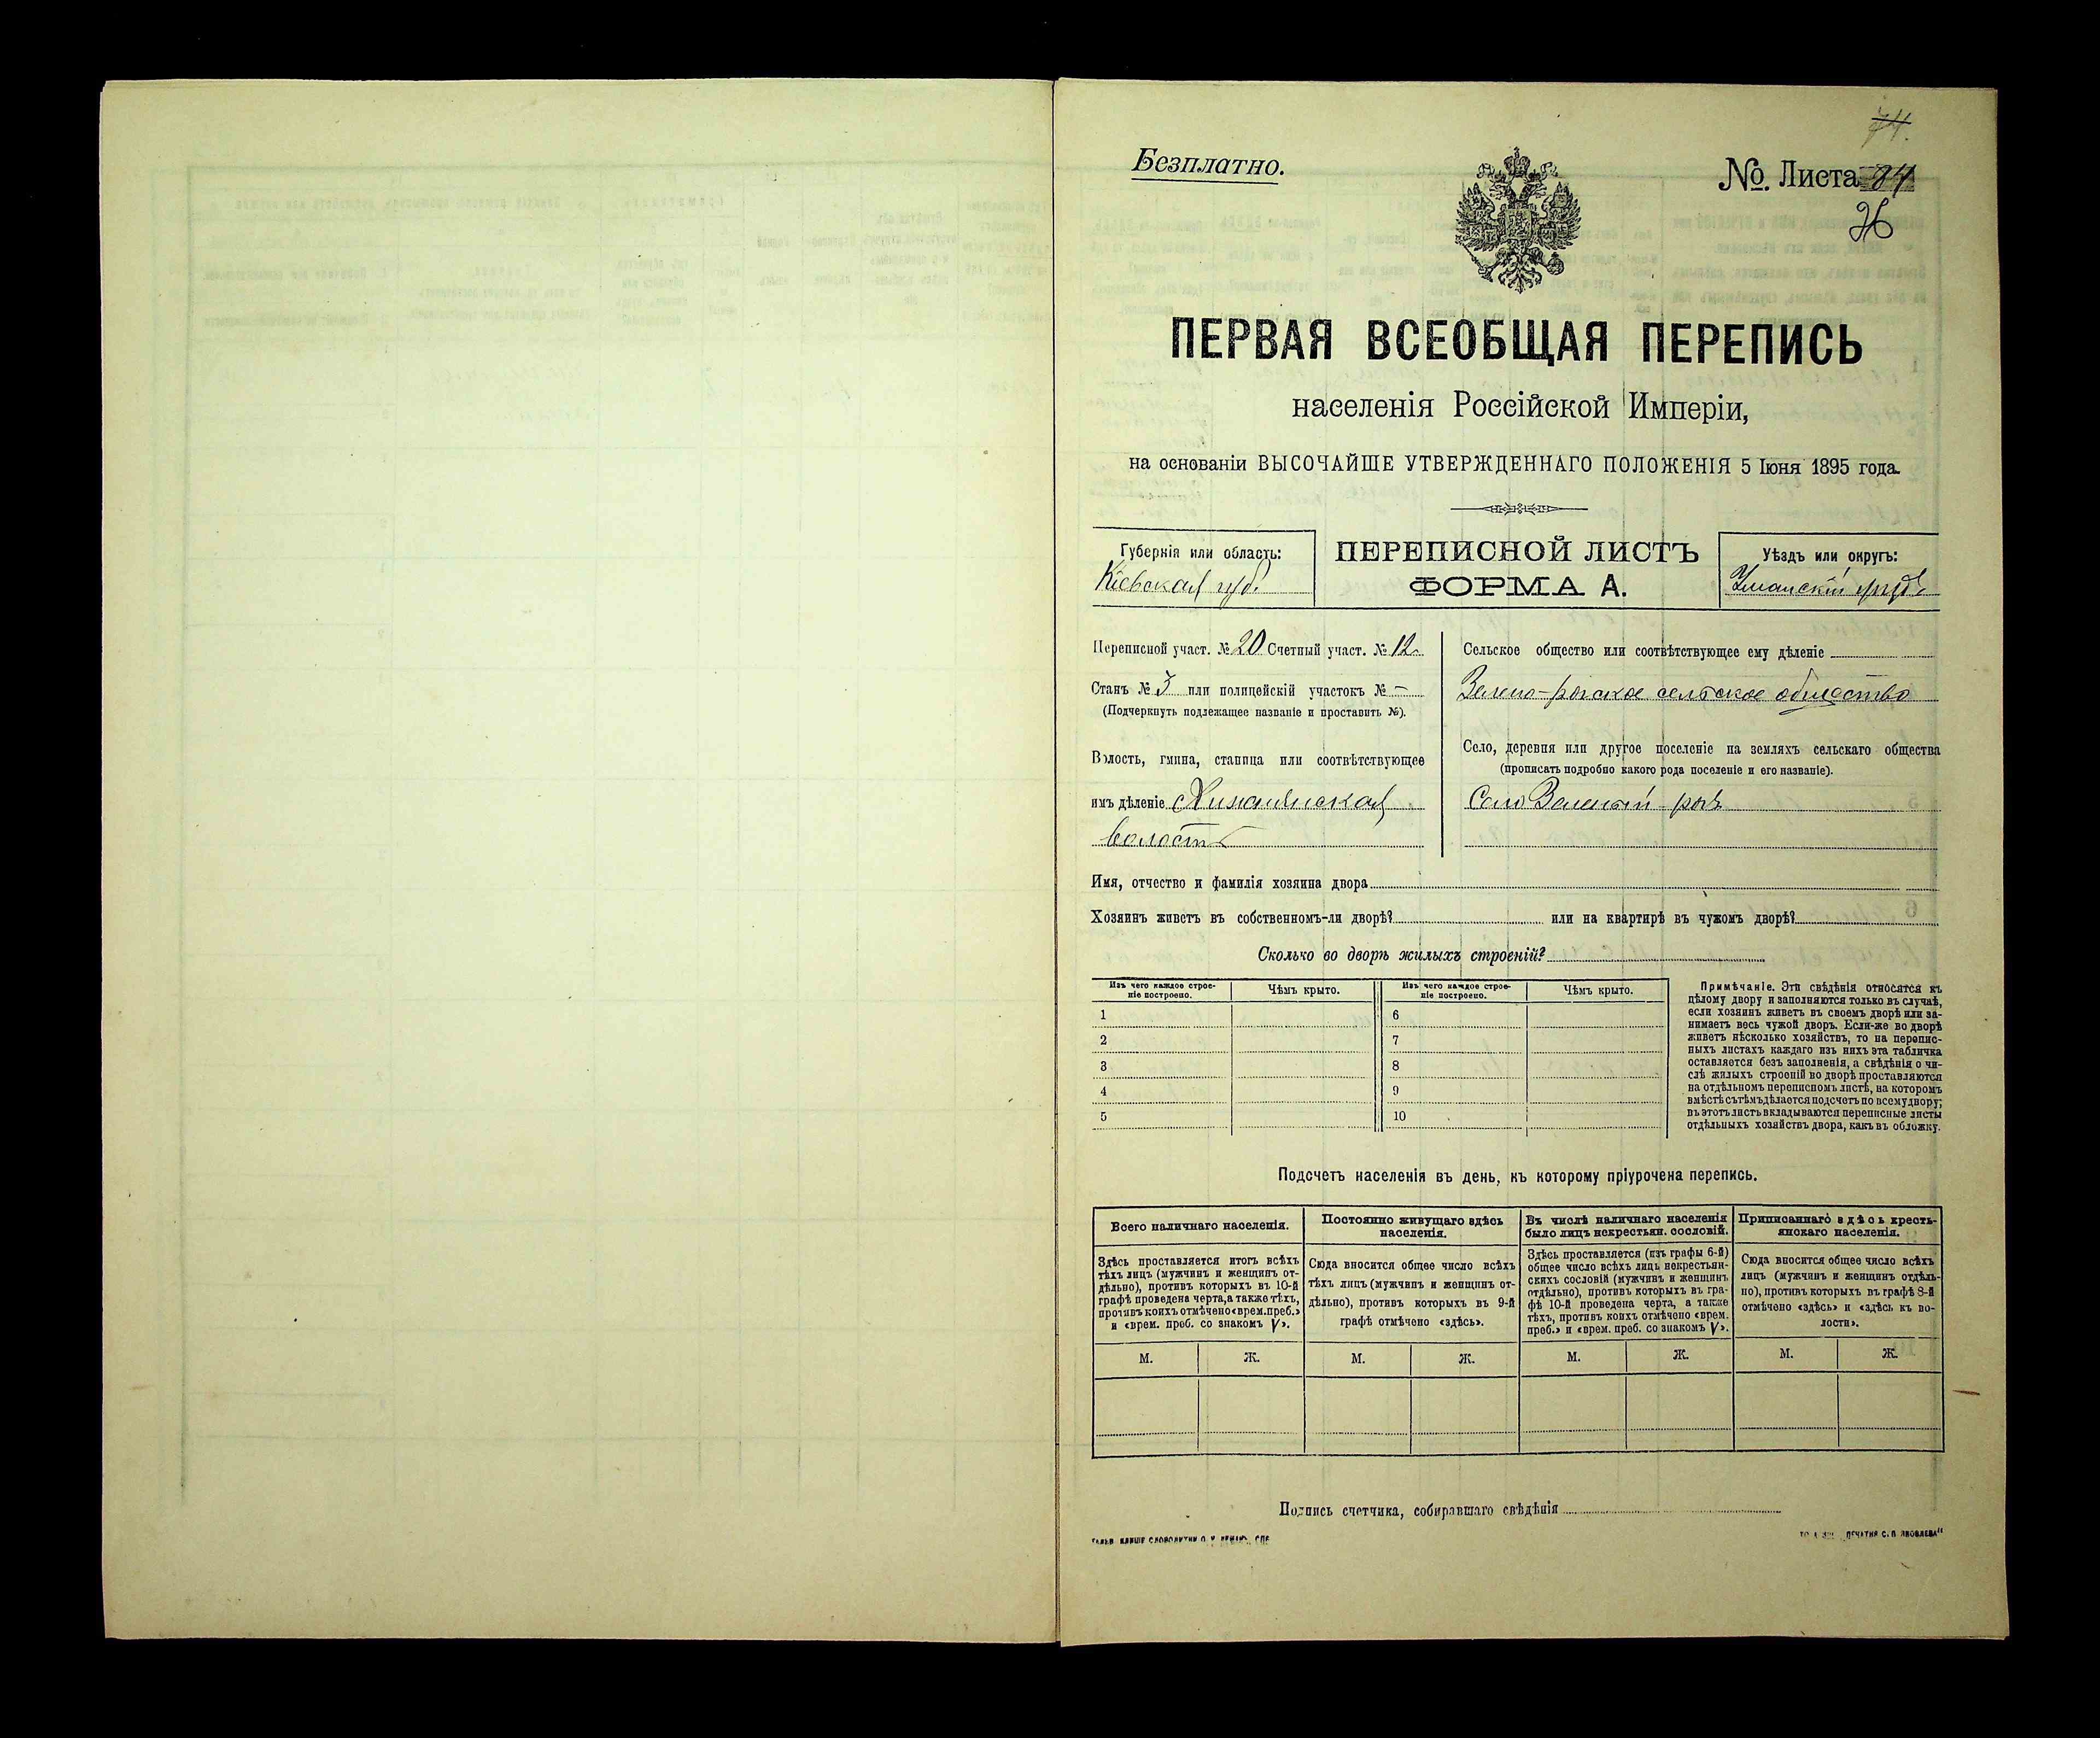 74.
Безплатно.
№. Листа 84
26
ПЕРВАЯ ВСЕОБЩАЯ ПЕРЕПИСЬ
населенія Россійской Имперіи,
на основаніи ВЫСОЧАЙШЕ УТВЕРЖДЕННАГО ПОЛОЖЕНІЯ 5 Іюня 1895 года.
Губернія или область:
Кіевская губ.
ПЕРЕПИСНОЙ ЛИСТЪ
ФОРМА А.
Уѣздъ или округъ:
Уманскій уѣздъ
Переписной участ. № 20 Счетный участ. № 12
Станъ № 3 или полицейскій участокъ № –
(Подчеркнуть подлежащее названіе и проставить №).
Волость, гмина, станица или соотвѣтствующее
имъ дѣленіе
волость
Сельское общество или соотвѣтствующее ему дѣленіе
Зелено-рогское сельское общество
Село, деревня или другое поселеніе на земляхъ сельскаго общества
(прописать подробно какого рода поселеніе и его названіе).
Село Зеленый рогъ
Имя, отчество и фамилія хозяина двора
Хозяинъ живетъ въ собственномъ-ли дворѣ? или на квартирѣ въ чужомъ дворѣ?
Сколько во дворѣ жилыхъ строеній?
Изъ чего каждое строе-
ніе построено.
Чѣмъ крыто.
Изъ чего каждое строе-
ніе построено.
Чѣмъ крыто.
1 6
2 7
3 8
4 9
5 10
Примѣчаніе. Эти свѣдѣнія относятся къ
цѣлому двору и заполняются только въ случаѣ,
если хозяинъ живетъ въ своемъ дворѣ или за-
нимаетъ весь чужой дворъ. Если-же во дворѣ
живетъ нѣсколько хозяйствъ, то на перепис-
ныхъ листахъ каждаго изъ нихъ эта табличка
оставляется безъ заполненія, а свѣдѣнія о чи-
слѣ жилыхъ строеній во дворѣ проставляются
на отдѣльномъ переписномъ листѣ, на которомъ
вмѣстѣ съ тѣмъ дѣлается подсчетъ по всему двору;
въ этотъ листъ вкладываются переписные листы
отдѣльныхъ хозяйствъ двора, какъ въ обложку.
Подсчетъ населенія въ день, къ которому пріурочена перепись.
Всего наличнаго населенія.
Здѣсь проставляется итогъ всѣхъ
тѣхъ лицъ (мужчинъ и женщинъ от-
дѣльно), противъ которыхъ въ 10-й
графѣ проведена черта, а также тѣхъ,
противъ коихъ отмѣчено «врем. преб.»
и «врем. преб. со знакомъ V».
М. Ж.
Постоянно живущаго здѣсь
населенія.
Сюда вносится общее число всѣхъ
тѣхъ лицъ (мужчинъ и женщинъ от-
дѣльно), противъ которыхъ въ 9-й
графѣ отмѣчено «здѣсь».
М. Ж.
Въ числѣ наличнаго населенія
было лицъ некрестьян. сословій.
Здѣсь проставляется (изъ графы 6-й)
общее число всѣхъ лицъ некрестьян-
скихъ сословій (мужчинъ и женщинъ
отдѣльно), противъ которыхъ въ гра-
фѣ 10-й проведена черта, а также
тѣхъ, противъ коихъ отмѣчено «врем.
преб.» и «врем. преб. со знакомъ V».
М. Ж.
Приписаннаго здѣсь кресть-
янскаго населенія.
Сюда вносится общее число всѣхъ
лицъ (мужчинъ и женщинъ отдѣль-
но), противъ которыхъ въ графѣ 8-й
отмѣчено «здѣсь» и «здѣсь къ во-
лости».
М. Ж.
Подпись счетчика, собиравшаго свѣдѣнія